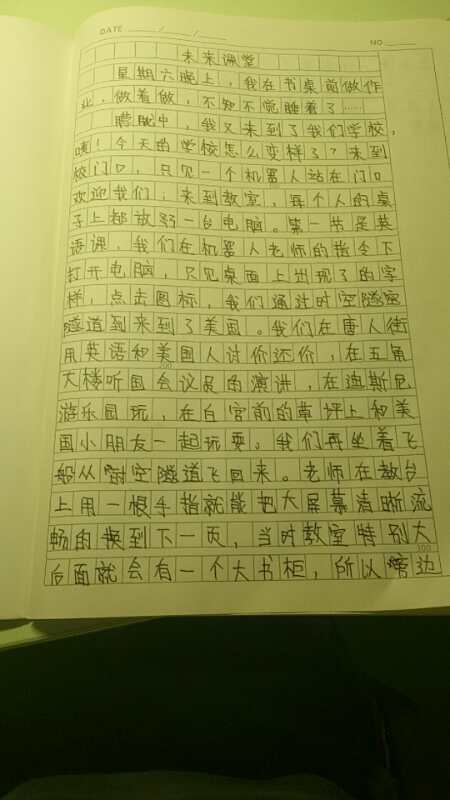 DATE / /
NO
未来课堂
星期六晚上，我在书桌前做作
业，做着做，不知不觉睡着了……
朦胧中，我又来到了我们学校，
咦！今天的学校怎么变样了？来到
校门口，只见一个机器人站在门口
欢迎我们；来到教室，每个人的桌
子上都放一台电脑。第一节是英
语课，我们在机器人老师的指令下
打开电脑，只见桌面上出现了的字
样，点击图标，我们通过时空隧
隧道到来到了美国。我们在唐人街
用英语和美国人讨价还价，在五角
200
大楼听国会议员的演讲，在迪斯尼
游乐园玩，在白宫前的草坪上和美
国小朋友一起玩耍。我们再坐着飞
船从时空隧道飞回来。老师在教台
上用一根手指就能把大屏幕清晰流
畅的换到下一页，当时教室特别大
300
后面就会有一个大书柜，所以边